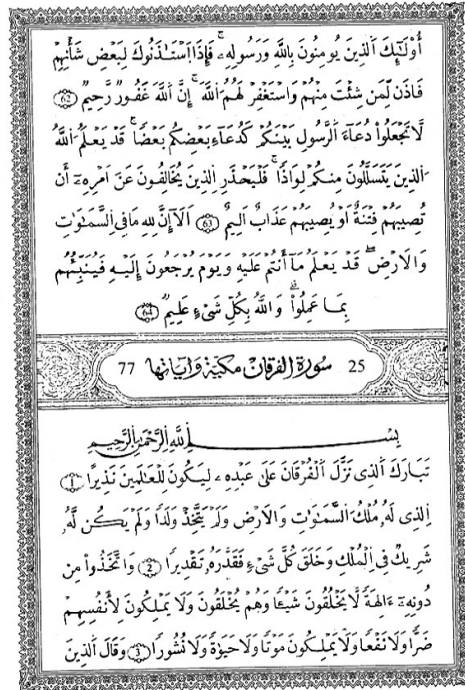 أُوْلَٰٓئِكَ اَلذِينَ يُومِنُونَ بِاللَّهِ وَرَسُولِهِۦ فَإِذَا اَسْتَـٰذَنُوكَ لِبَعْضِ شَأْنِهِمْ
فَاذَن لِّمَن شِئْتَ مِنْهُمْ وَاسْتَغْفِرْ لَهُمُ اللَّهَ إِنَّ اللَّهَ غَفُورٌ رَّحِيمٌ 62
لَّا تَجْعَلُواْ دُعَآءَ اَلرَّسُولِ بَيْنَكُمْ كَدُعَآءِ بَعْضِكُم بَعْضًا قَدْ يَعْلَمُ اللَّهُ
اَلذِينَ يَتَسَلَّلُونَ مِنكُمْ لِوَاذًا فَلْيَحْذَرِ اِلذِينَ يُخَالِفُونَ عَنَ اَمْرِهِۦٓ أَن
تُصِيبَهُمْ فِتْنَةٌ اَوْ يُصِيبَهُمْ عَذَابٌ اَلِيمٌ 63 اَلَآ إِنَّ لِلهِ مَا فِى اِلسَّمَٰوَٰتِ
وَالَارْضِ قَدْ يَعْلَمُ مَآ أَنتُمْ عَلَيْهِ وَيَوْمَ يُرْجَعُونَ إِلَيْهِ فَيُنَبِّئُهُم
بِمَا عَمِلُواْ وَاللَّهُ بِكُلِّ شَىْءٍ عَلِيمٌ 64
25 سورة الفرقان مكية وآياتها 77
بِسْمِ اِللَّهِ اِلرَّحْمَٰنِ اِلرَّحِيمِ
تَبَارَكَ اَلذِى نَزَّلَ اَلْفُرْقَانَ عَلَىٰ عَبْدِهِۦ لِيَكُونَ لِلْعَالَمِينَ نَذِيرًا 1
اِلذِى لَهُۥ مُلْكُ اُلسَّمَٰوَٰتِ وَالَارْضِ وَلَمْ يَتَّخِذْ وَلَدًا وَلَمْ يَكُن لَّهُۥ
شَرِيكٌ فِى اِلْمُلْكِ وَخَلَقَ كُلَّ شَىْءٍ فَقَدَّرَهُۥ تَقْدِيرًا 2 وَاتَّخَذُواْ مِن
دُونِهِۦٓ ءَالِهَةً لَّا يَخْلُقُونَ شَيْـًٔا وَهُمْ يُخْلَقُونَ وَلَا يَمْلِكُونَ لِأَنفُسِهِمْ
ضَرًّا وَلَا نَفْعًا وَلَا يَمْلِكُونَ مَوْتًا وَلَا حَيَوٰةً وَلَا نُشُورًا 3 وَقَالَ اَلذِينَ